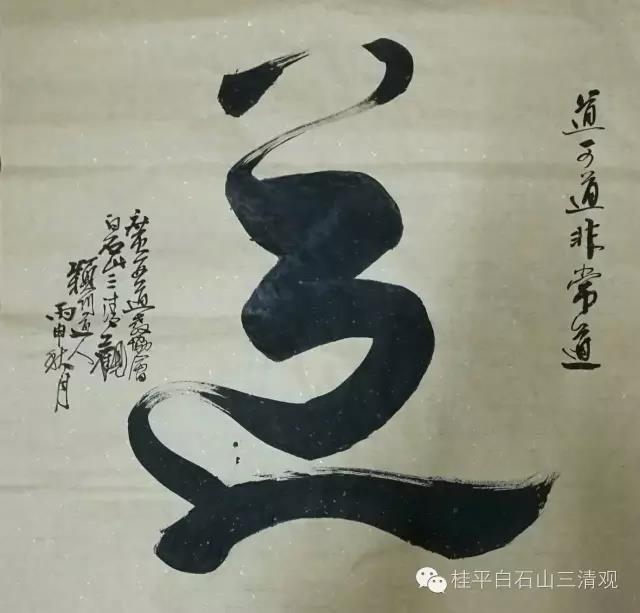 道可道非常道
道
道教協會
白石山三清觀
穎川道人
丙申秋月
桂平白石山三清观